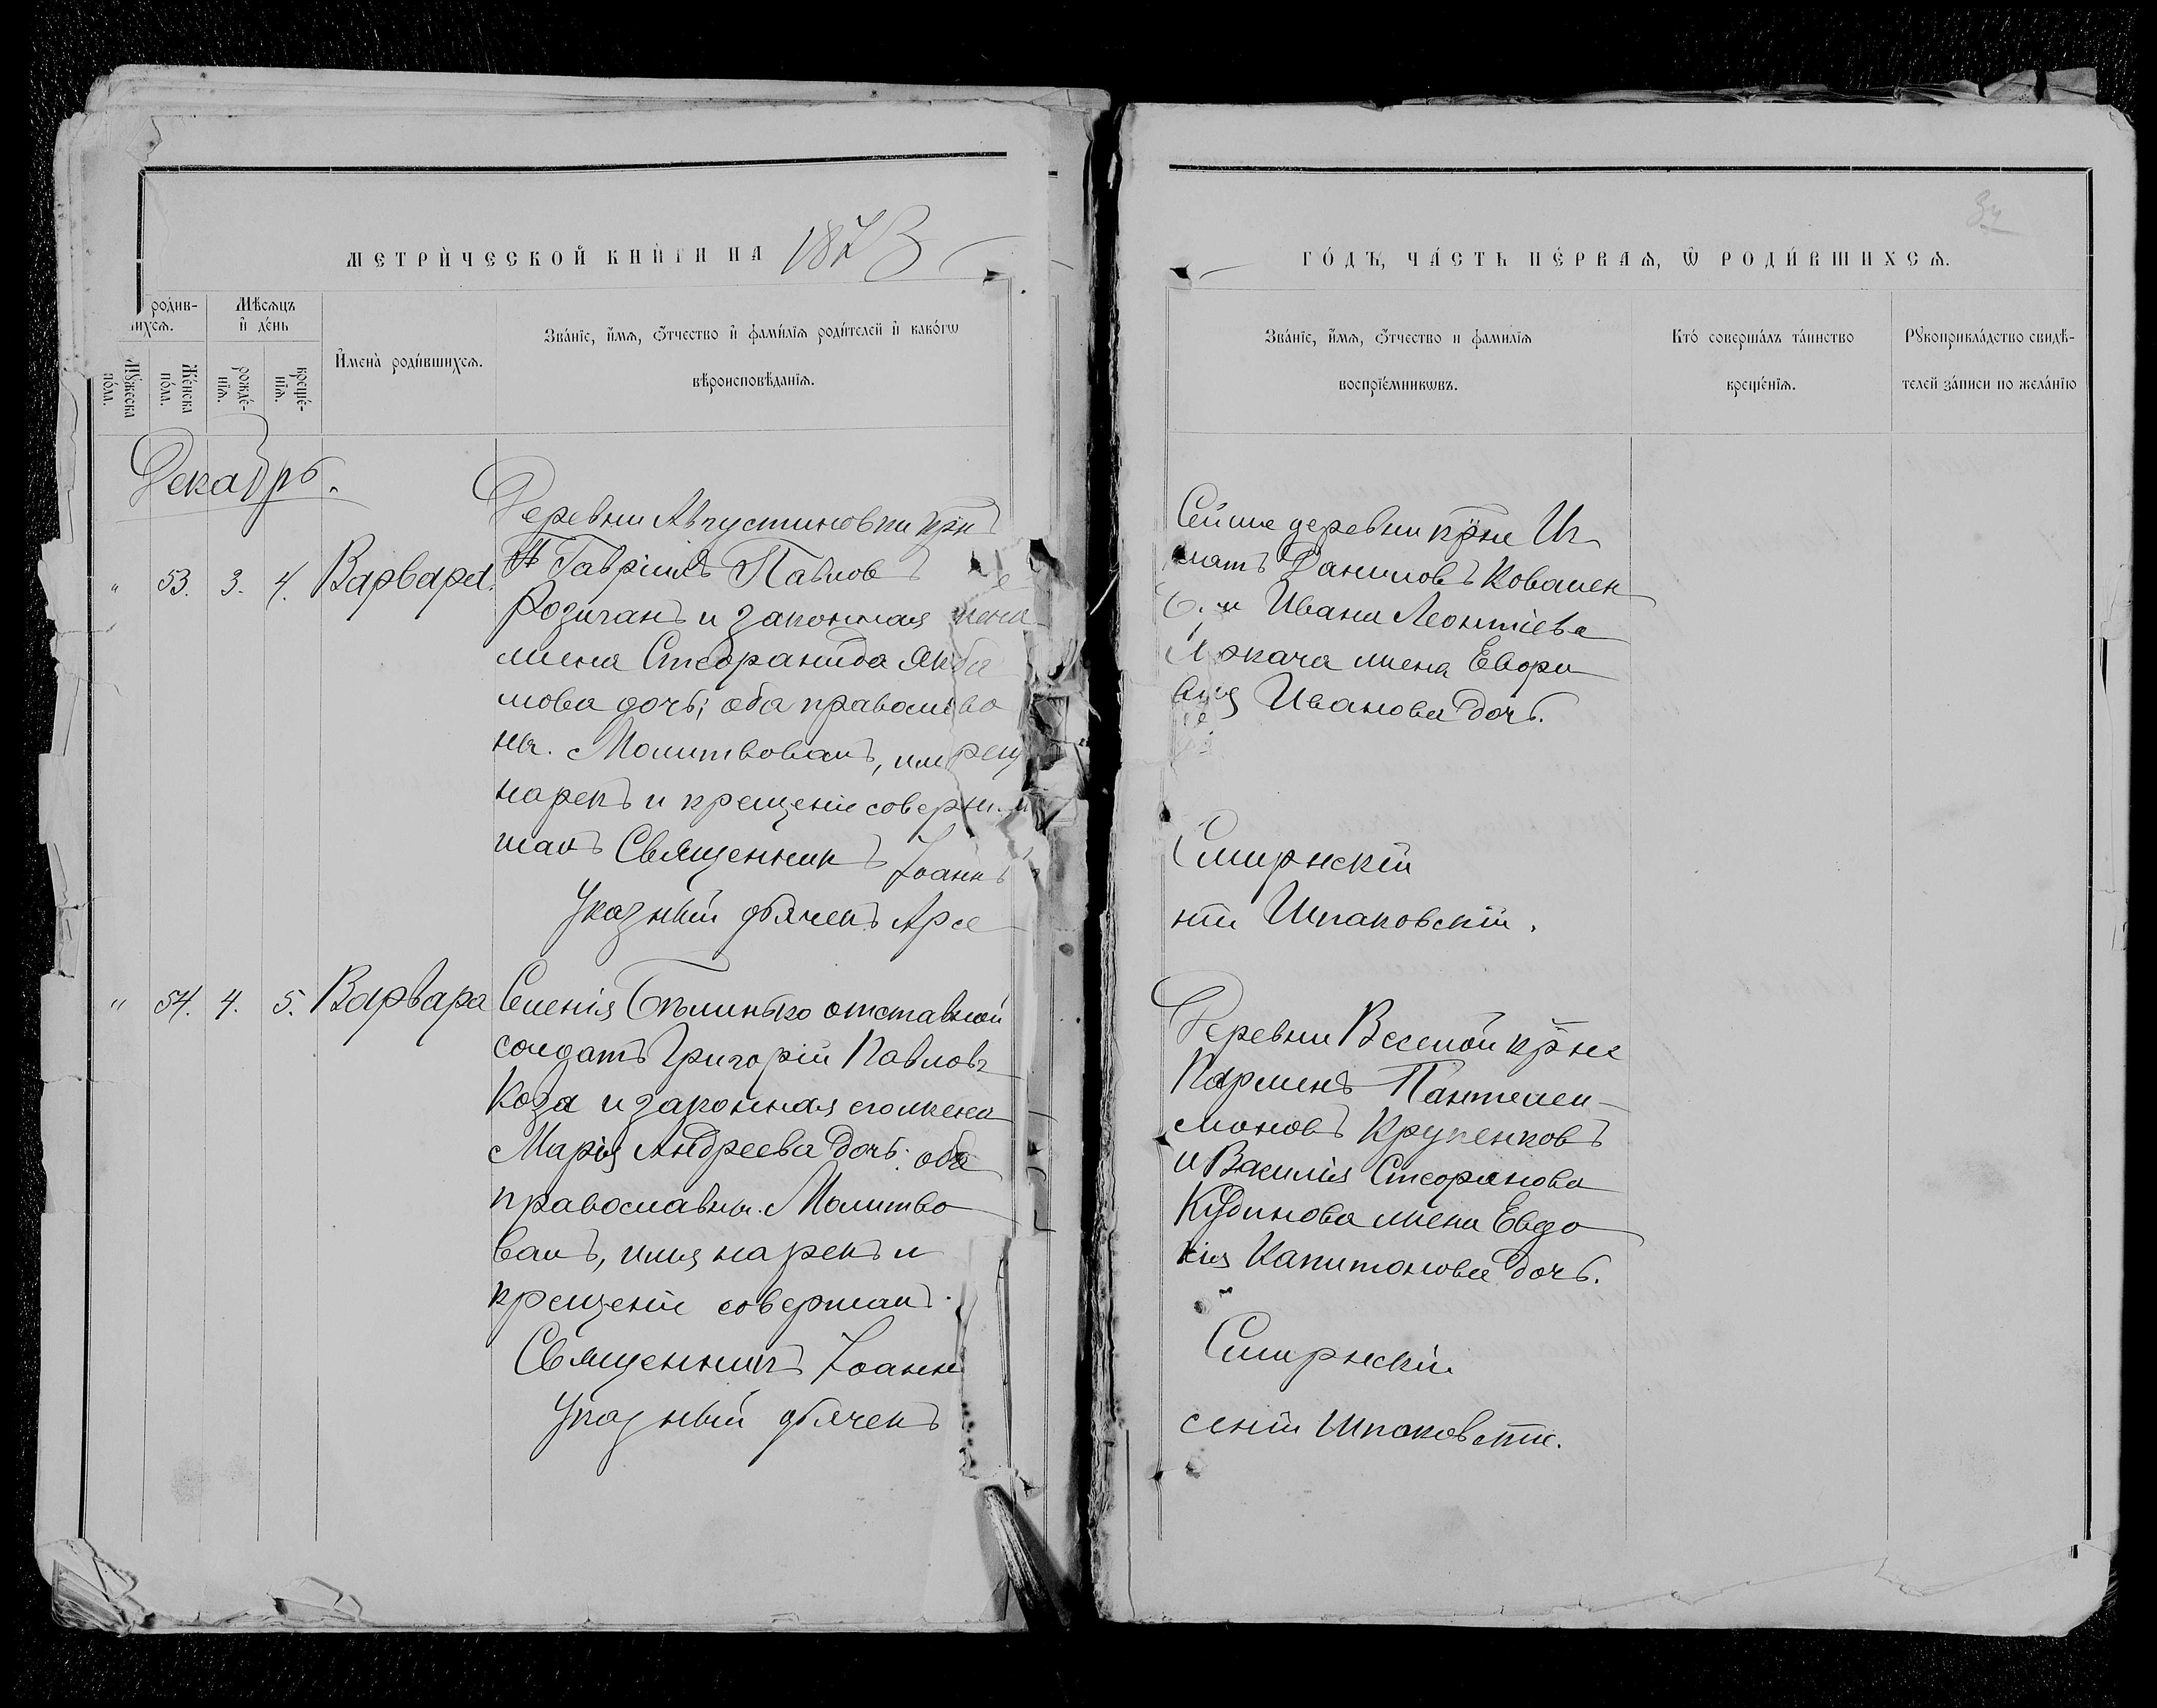 МЕТРИ́ЧЕСКОЙ КНИ́ГИ НА 1873
родив-
шихсѧ.
Мѣсѧцъ
и҆ де́нь
Мꙋ́жеска
по́ла.
Же́нска
по́ла.
рожде́-
нїѧ.
креще́-
нїѧ.
И҆мена̀ роди́вшихсѧ.
Зва́нїе, и҆́мѧ, ѻ҆́тчество и҆ фами́лїѧ роди́телей и҆ како́гѡ
вѣроисповѣ́данїѧ.
Декабрь.
" 53. 3. 4. Варвара.
Деревни Августиновки крн
Гавріилъ Павловъ
Розиганъ и законная
жена Стефанида
мова дочь; оба православ
ны. Молитвовалъ, имя
нарекъ и крещеніе совер
шалъ Священникъ Іоаннъ
Указный дьячекъ Арсе
" 54. 4. 5. Варвара
Селенія Билинько отставной
солдатъ Григорій Павловъ
Коза и законная его жена
Марія Андреева дочь: оба
православны. Молитво
валъ, имя нарекъ и
крещеніе совершалъ.
Священникъ Іоаннъ
Указный дьячекъ
ГО́ДЪ, ЧА́СТЬ ПЕ́РВАѦ, Ѡ҆ РОДИ́ВШИХСѦ.
Зва́нїе, и҆́мѧ, ѻ҆́тчество и фами́лїѧ
воспрїе́мникѡвъ.
Кто́ соверша́лъ та́инство
креще́нїѧ.
Рꙋкоприкла́дство свидѣ́-
телей за́писи по жела́нїю
Сейже деревни крне Иг
натъ Даниловъ Ковален
и Ивана Леонтіева
жена Евфро
Иванова дочь.
Смирнскій
ній Шпаковскій.
Деревни Веселой крне
Карпинъ Пантелеи-
моновъ Крупенковъ
и Василія Стефанова
Кудинова жена Евдо
кія Капитонова дочь.
Смирнскій
сеній Шпаковскій.